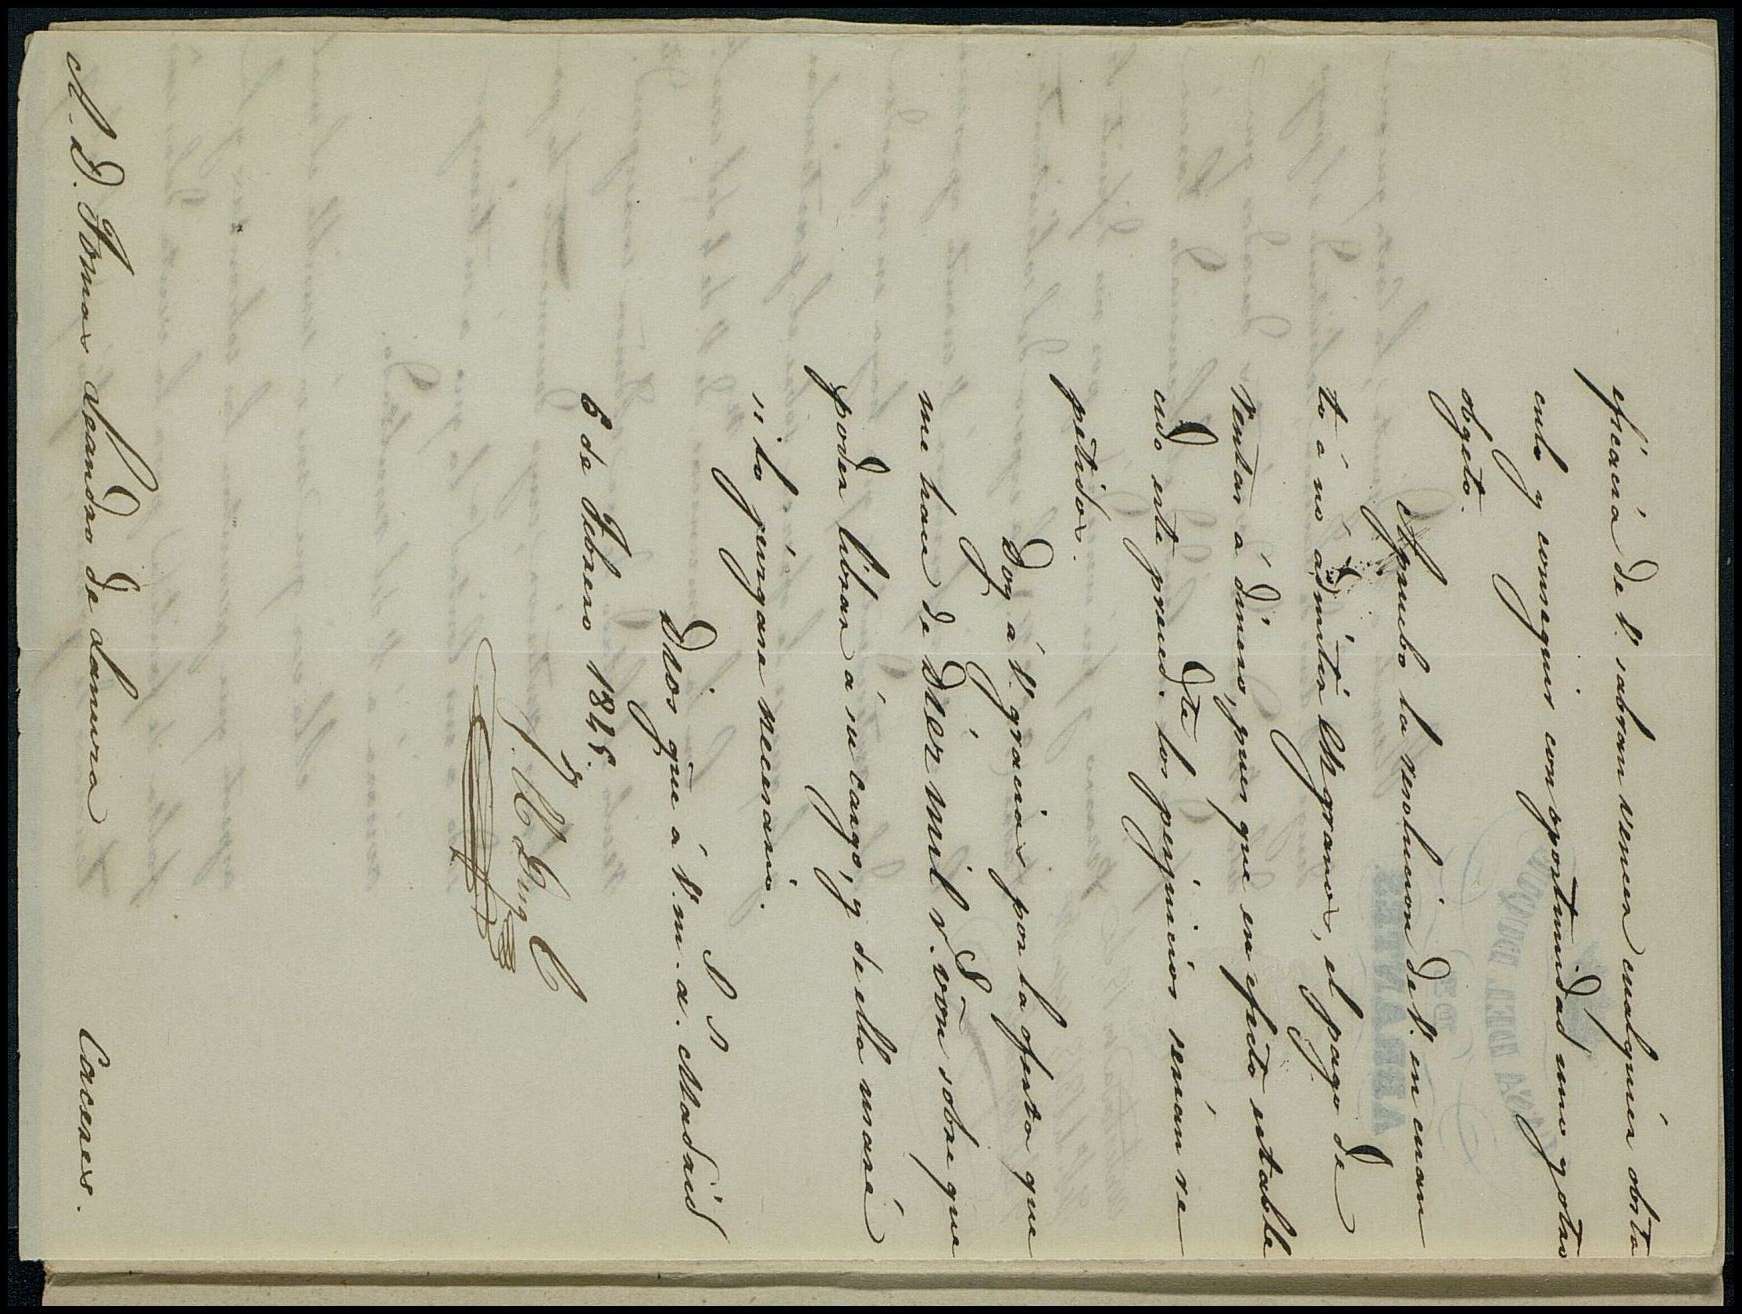 eficacia de V. sabran vencer cualquier obsta
culo y conseguir con oportunidad uno y otro
objeto.
Apruebo la resolucion de V. en cuan
to á no admitir en granos, el pago de
rentas á dinero, pues que en efecto estable
cido este preced.te los perjuicios serian re
petidos.
Doy á V. gracias por la oferta que
me hace de Diez mil r.s von sobre que
poder librar á su cargo, y de ella usaré
si lo juzgare necesario.
Dios gue á V. m. a. Madrid
6 de Febrero 1845.
A. D. Tomas Leandro de Lamura Caceres.
CASA DUCAL
DE
ABRANTES